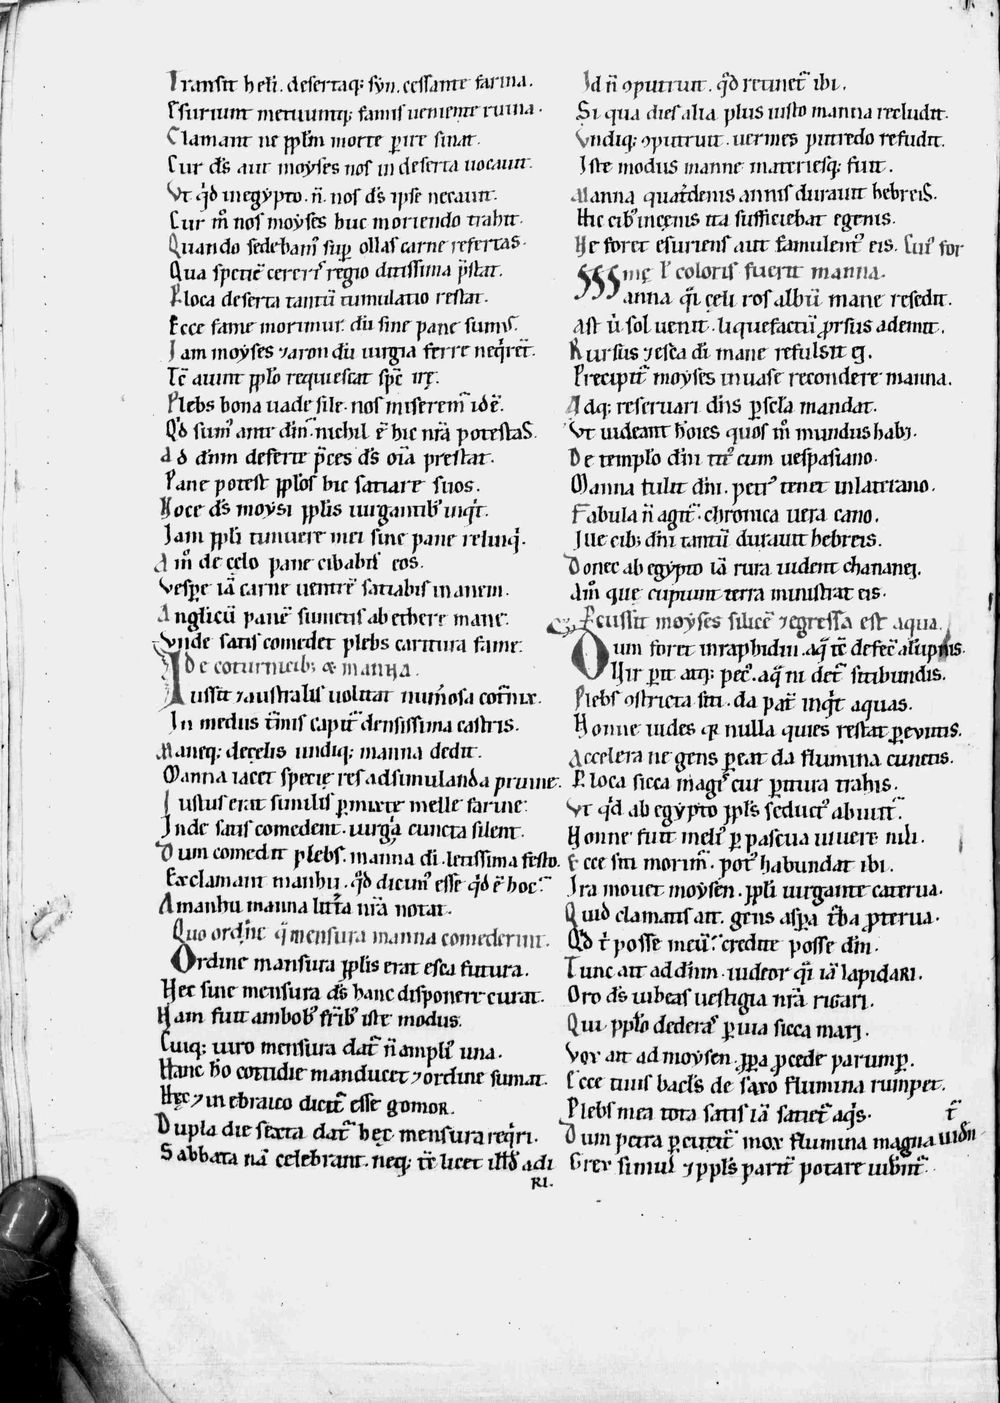 Transit heli. desertaq; syn. cessante farina.
Esuriunt metuuntq; famis ueniente ruina.
Clamant ne pplm morte perire sinat.
Cur ds aut moyses nos in deserta uocauit.
Vt qd inegypto. n̄. nos ds ipse necauit.
Cur m̄ nos moyses huc moriendo trahit.
Quando sedebam' sup ollas carne refertas.
Qua specie cereris regio ditissima p̄stat.
P loca deserta tantū tumulatio restat.
Ecce fame morimur. dū sine pane sumus.
Iam moyses ⁊aron dū iurgia ferre neqret.
Tc̄ aiunt pplo requiescat spc̄
Plebs bona uade sile. nos miserem̄ ide.
Qd sum' ante dm̄. nichil ē hic nr̄a potestas.
Ad dnm deferte p̄ces ds oīa prestat.
Pane potest pplos hic satiare suos.
Hoce ds moysi pplis iurgantib' inqt.
Iam ppli timuere mei sine pane relinq.
Am̄ de celo pane cibabis eos.
Vespe iā carne uentre satiabis inanem.
Anglicū pane sumetis ab ethere mane.
Vnde satis comedet plebs caritura fame.
De coturnicib; & manna.
Iussit ⁊australis uolitat num̄osa cot̄nix.
In medus t̄mis capit̄ densissima castris.
Maneq; decelis undiq; manna dedit.
Manna iacet specie res adsimulanda pruine.
Iustus erat similis p̄mixte melle farine.
Inde satis comedent. iurgā cuncta silent.
Dum comedit plebs. manna di. letissima festo.
Exclamant manhu. qd dicim' esse qd ē hoc.
A manhu manna litt̄a nr̄a notat.
Quo ordine q̄ mensura manna comederunt.
Ordine mansura pplis erat esca futura.
Hec sine mensura ds hanc disponere curat.
Nam fuit ambob' frīb' iste modus.
Cuiq; uiro mensura dat̄ n̄ ampli' una.
Hanc hō cottidie manducet ⁊ordine sumat.
Hec ⁊ in ebraico dicit̄ esse gomor.
Dupla die sexta dat̄ hec mensura reqri.
Sabbata nā celebrant. neq; tr̄e licet illud adi
RI.
Id n̄ oputruit. qd retinet̄ ibi.
Si qua dies alia plus iusto manna recludit.
Vndiq; oputruit. uermes putredo refudit.
Iste modus manne materiesq; fuit.
Manna quat̄denis annis durauit hebreis.
Hic cib' incenis ita sufficiebat egenis.
Ne foret esuriens aut famulent' eis. Cui' for
me l' coloris fuerit manna.
Manna qi celi ros albū mane resedit.
Ast ū sol uenit. liquefactū prsus ademit.
Rursus ⁊esca di mane refulsit ei.
Precipit̄ moyses inuase recondere manna.
Adq; reseruari dns p̄ scla mandat.
Vt uideant hoies quos m̄ mundus habz.
De templo dni tit' cum uespasiano.
Manna tulit dni. petr' tenet inlatriano.
Fabula n̄ agit̄. chronica uera cano.
Iste cib; dni tantū durauit hebreis.
Donec ab egypto iā rura uident chananei.
Am̄ que cupiunt terra ministrat eis.
Percussit moyses silice ⁊egressa est aqua.
Dum foret inraphidin. aq̄ tc̄ defec̄ alūpnis.
Uir perit atq; pec'. aq̄ ni det̄ sitibundis.
Plebs ostricta siti. da pat̄ inqt aquas.
Nonne uides qr nulla quies restat peuntis.
Accelera ne gens pereat da flumina cunctis.
P loca sicca magi' cur peritura trahis.
Vt qd ab egypto ppls seduct' abiuit.
Nonne fuit meli' p pascua uiuere nili.
Ecce siti morim̄. pot' habundat ibi.
Ira mouet moysen. ppli iurgante caterua.
Quid clamatis ait. gens aspa t̄ba pterua.
Qd t̄ posse meū: credite posse dm̄.
Tunc ait ad dnm. uideor qi iā lapidari.
Oro ds iubeas uestigia nr̄a rigari.
Qui pplo dederas p uia sicca mari.
Vox ait ad moysen. ppa pcede parump.
Ecce tuus bacls de saxo flumina rumpet.
Plebs mea tota satis iā satiet̄ aqs.
Dum petra percutet̄ mox flumina magna uidnt̄
Grex simul ⁊ppls parit̄ potare uidnt̄.